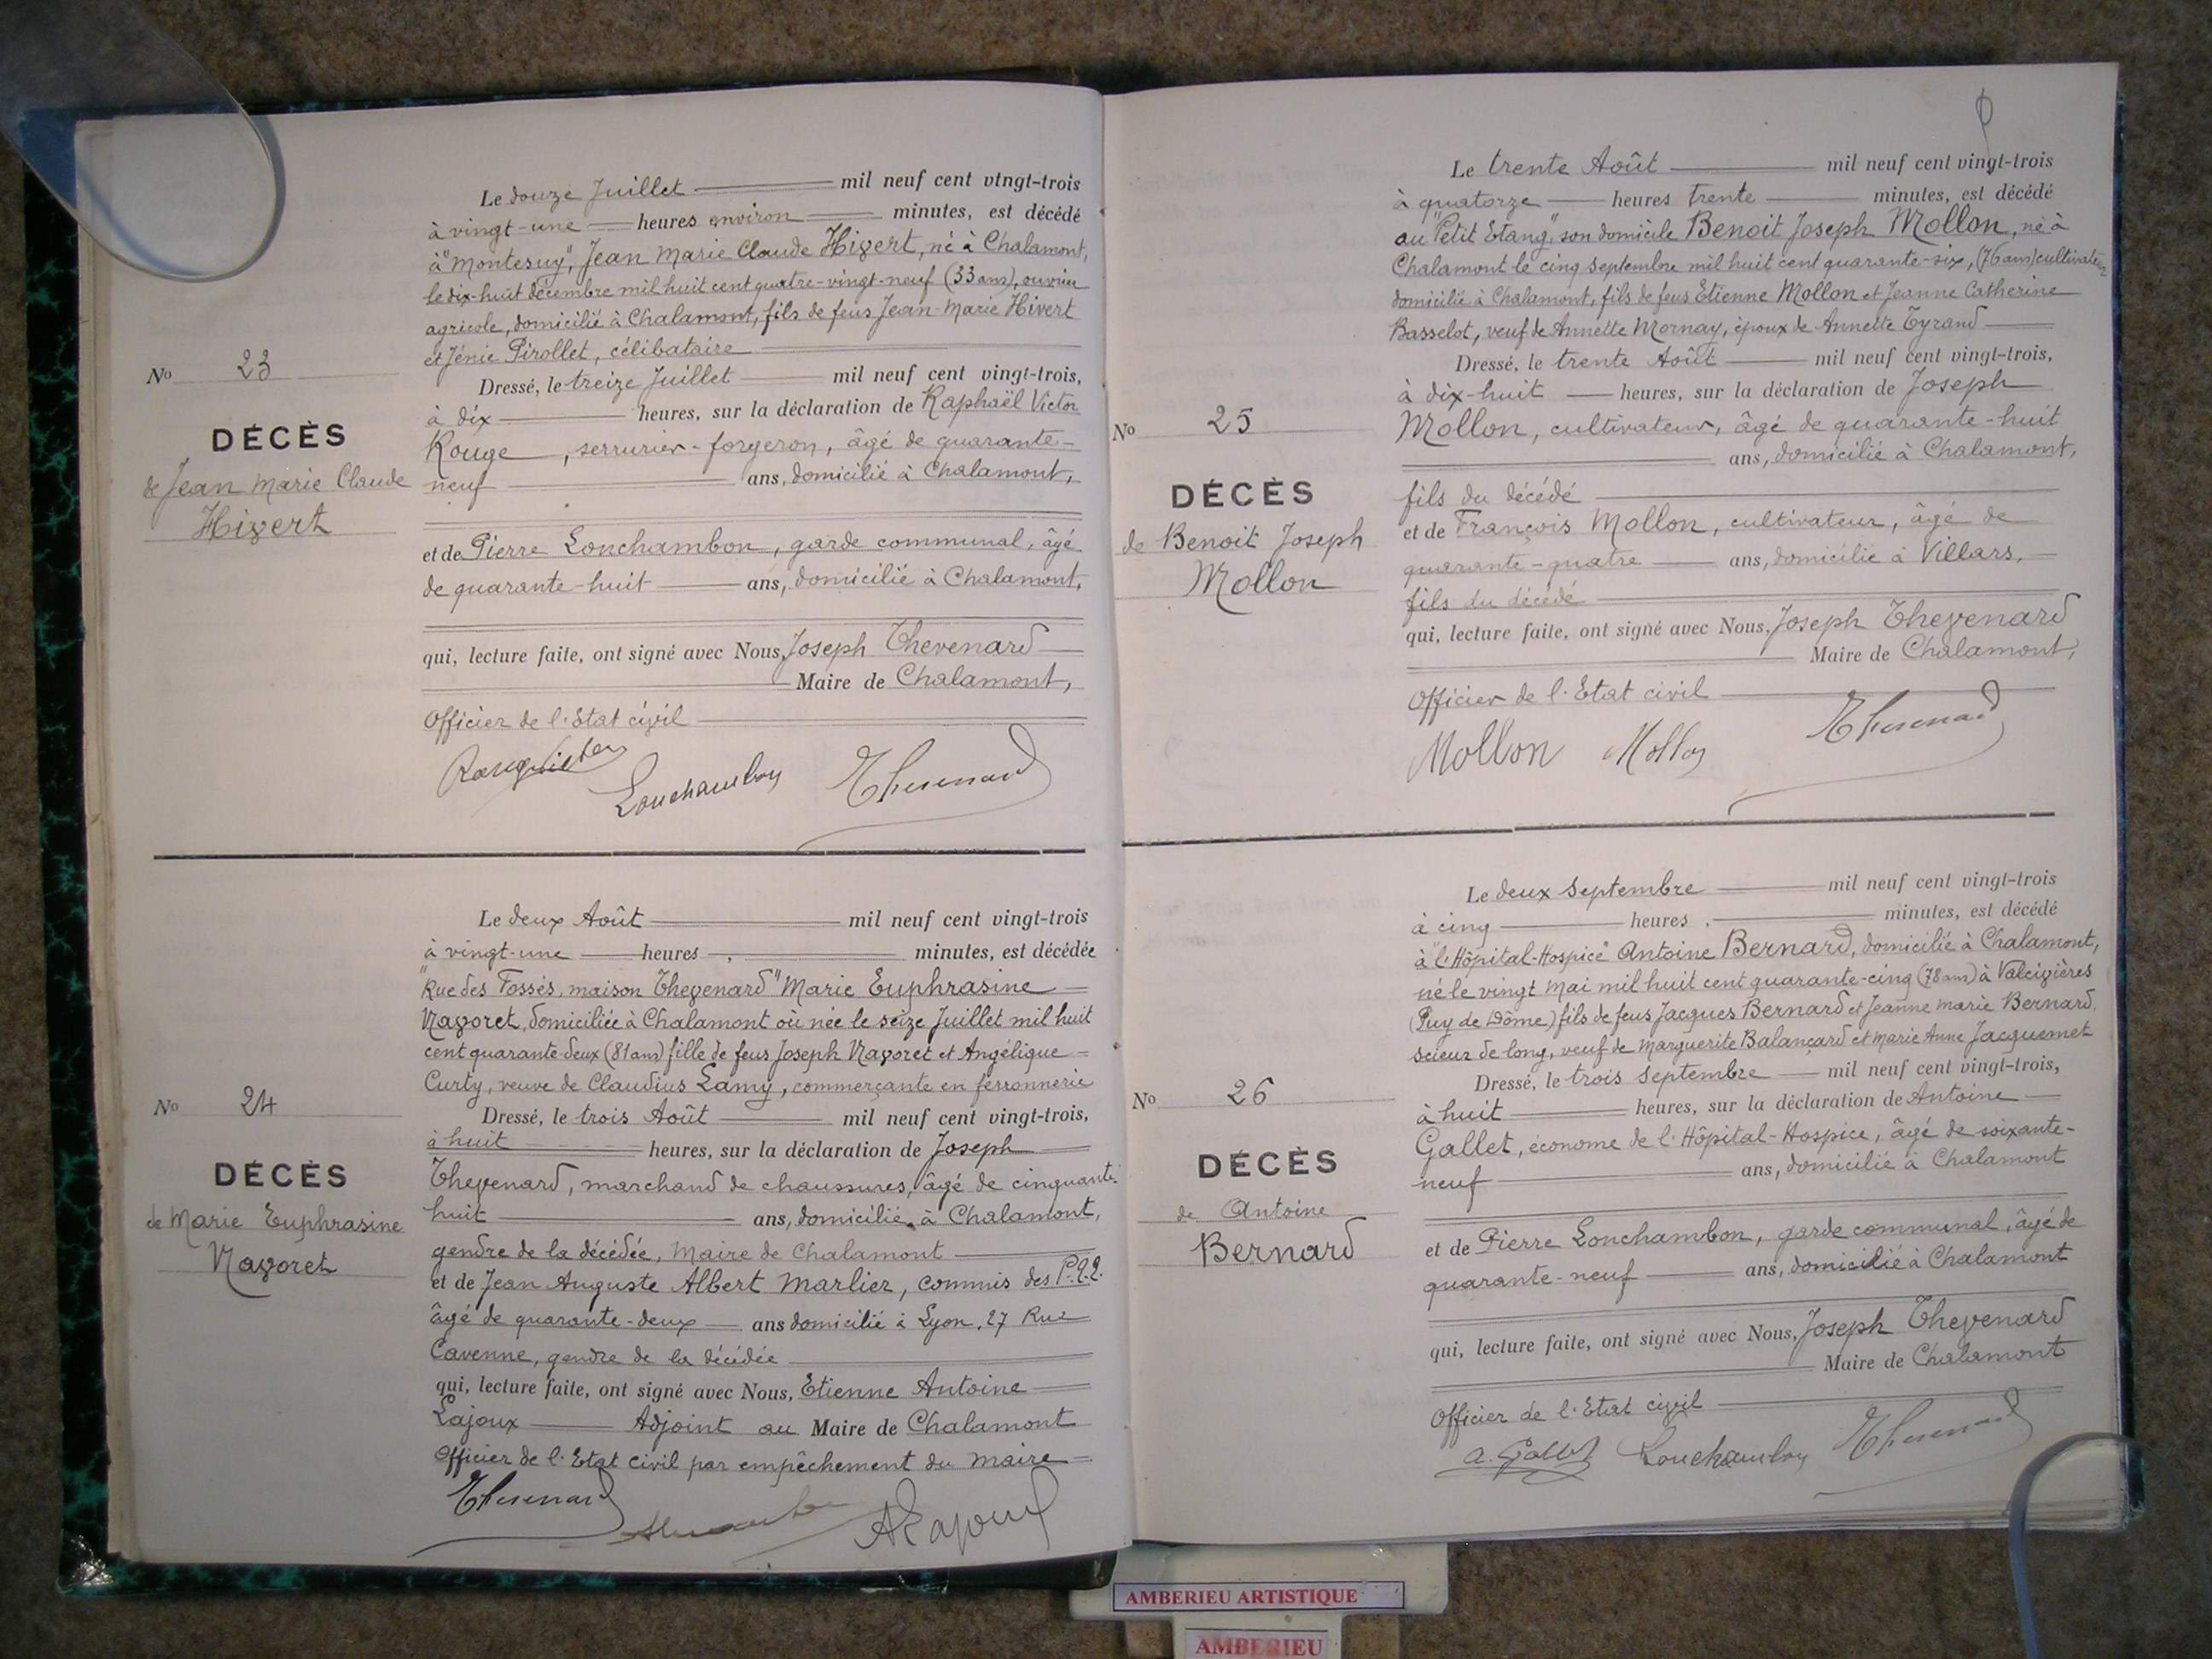 Le douze Juillet mil neuf cent vingt-trois
à vingt-une heures environ minutes, est décédé
à "Montesuy", Jean Marie Claude Hivert, né à Chalamont,
le dix-huit décembre mil huit cent quatre-vingt-neuf (33 ans), ouvrier
agricole, domicilié à Chalamont, fils de feus Jean-Marie Hivert
et Jénie Pirollet, célibataire
No 23
Dressé, le treize Juillet mil neuf cent vingt-trois,
à dix heures, sur la déclaration de Raphaël Victor
DÉCÈS
Rouge, serrurier-forgeron, âgé de quarante-
de Jean Marie Claude
neuf ans, domicilié à Chalamont,
Hivert
et de Pierre Lonchambon, garde communal, âgé
de quarante-huit ans, domicilié à Chalamont,
qui, lecture faite, ont signé avec Nous, Joseph Thevenard
Maire de Chalamont,
Officier de l'Etat civil
Lonchambon Thevenard
Le deux Août mil neuf cent vingt-trois
à vingt-une heures, minutes, est décédée
"Rue des Fossés, maison Thevenard" Marie Euphrasine
Navoret, domiciliée à Chalamont où née le seize Juillet mil huit
cent quarante-deux (81 ans) fille de feus Joseph Navoret et Angélique
Curty, veuve de Claudius Lamy, commerçante en ferronnerie
No 24
Dressé, le trois Août mil neuf cent vingt-trois,
à huit heures, sur la déclaration de Joseph
DÉCÈS
Thevenard, marchand de chaussures, âgé de cinquante-
de Marie Euphrasine
huit ans, domicilié à Chalamont,
Navoret
gendre de la décédée, Maire de Chalamont
et de Jean Auguste Albert Marlier, commis des P.T.T.
âgé de quarante-deux ans domicilié à Lyon, 27 Rue
Cavenne, gendre de la décédée
qui, lecture faite, ont signé avec Nous, Etienne Antoine
Lajoux Adjoint au Maire de Chalamont
Officier de l'Etat civil par empêchement du Maire
Thevenard
ALajoux
Le trente Août mil neuf cent vingt-trois
à quatorze heures trente minutes, est décédé
au "Petit Etang", son domicile Benoit Joseph Mollon, né à
Chalamont le cinq septembre mil huit cent quarante-six, (76 ans) cultivateur
domicilié à Chalamont, fils de feus Etienne Mollon et Jeanne Catherine
Basselot, veuf de Annette Mornay, époux de Annette Tyrand
Dressé, le trente Août mil neuf cent vingt-trois,
à dix-huit heures, sur la déclaration de Joseph
No 25
Mollon, cultivateur, âgé de quarante-huit
ans, domicilié à Chalamont,
DÉCÈS
fils du décédé
de Benoit Joseph
et de François Mollon, cultivateur, âgé de
Mollon
quarante-quatre ans, domicilié à Villars,
fils du décédé
qui, lecture faite, ont signé avec Nous, Joseph Thevenard
Maire de Chalamont,
Officier de l'Etat civil
Mollon Mollon Thevenard
Le deux Septembre mil neuf cent vingt-trois
à cinq heures, minutes, est décédé
à "l'Hôpital-Hospice" Antoine Bernard, domicilié à Chalamont,
né le vingt Mai mil huit cent quarante-cinq (78 ans) à Valcivières
(Puy de Dôme) fils de feus Jacques Bernard et Jeanne Marie Bernard,
scieur de long, veuf de Marguerite Balançard et Marie Anne Jacquemet
No 26
Dressé, le trois Septembre mil neuf cent vingt-trois,
à huit heures, sur la déclaration de Antoine
Gallet, économe de l'Hôpital-Hospice, âgé de soixante-
DÉCÈS
neuf ans, domicilié à Chalamont
de Antoine
Bernard
et de Pierre Lonchambon, garde communal, âgé de
quarante-neuf ans, domicilié à Chalamont
qui, lecture faite, ont signé avec Nous, Joseph Thevenard
Maire de Chalamont
Officier de l'Etat civil
a. Gallet Lonchambon Thevenard
AMBERIEU ARTISTIQUE
AMBERIEU